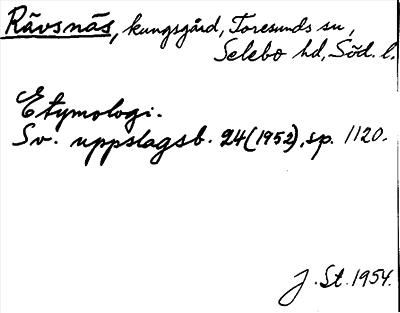 Rävsnäs, kungsgård, Toresunds sn,
Selebo hd, Söd. l.
Etymologi.
Sv. uppslagsb. 24(1952), sp. 1120.
J. St. 1954.